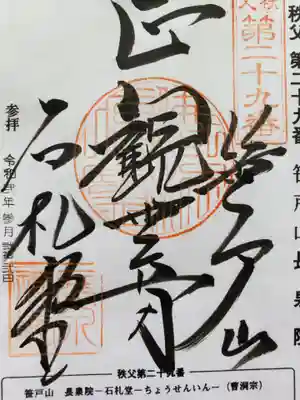 秩父
第二十九番
秩父 第二十九番 笹戸山 長泉院
笹戸山
正観世音
石札堂
参拝 令和弐年参月
秩父第二十九番
笹戸山 長泉院ー石札堂ーちょうせんいんー(曹洞宗)